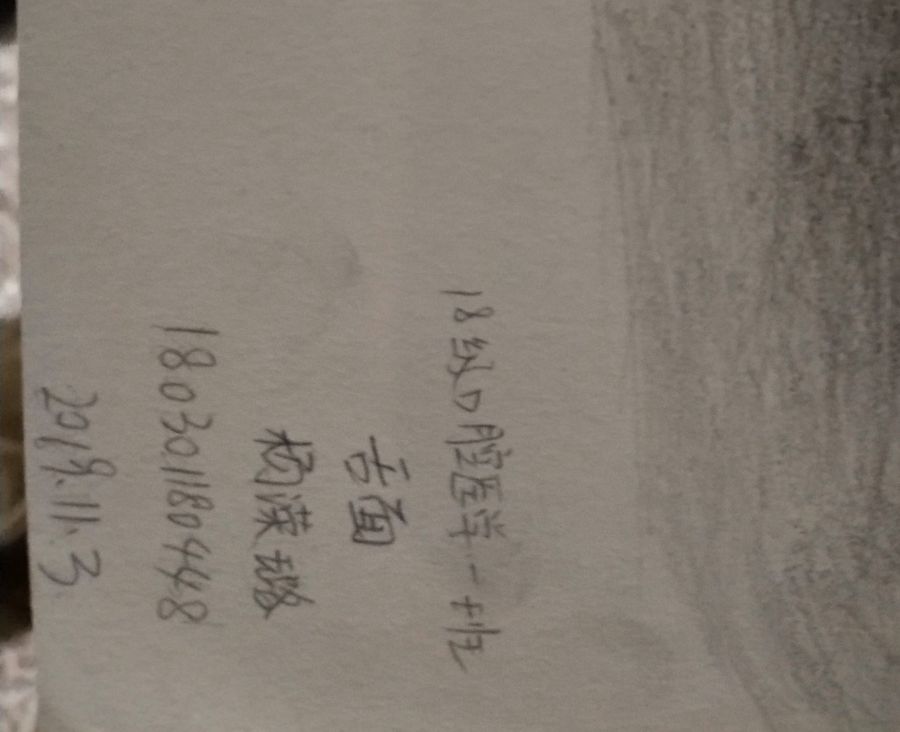 18级口腔医学一班
舌面
杨溁璐
180301180448
2019.11.3